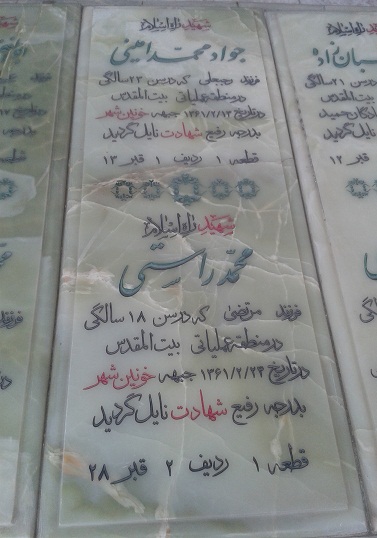 شهید راه اسلام
جواد محمد امینی
فرزند رجبعلی که در سن ۲۳ سالگی
در منطقه عملیاتی بیت المقدس
در تاریخ ۱۳۶۱/۲/۱۳ جبهه خونین شهر
بدرجه رفیع شهادت نایل گردید
قطعه ۱ ردیف ۱ قبر ۱۳
شهید راه اسلام
محمد راستی
فرزند مرتضی که در سن ۱۸ سالگی
در منطقه عملیاتی بیت المقدس
در تاریخ ۱۳۶۱/۲/۲۴ جبهه خونین شهر
بدرجه رفیع شهادت نایل گردید
قطعه ۱ ردیف ۲ قبر ۲۸
شهید راه اسلام
در سن ۲۱ سالگی
بیت المقدس
نایل گردید
قبر ۱۲